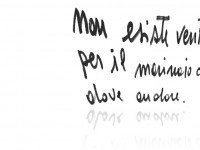 Non esiste vent
per il marinaio c
dove andare.